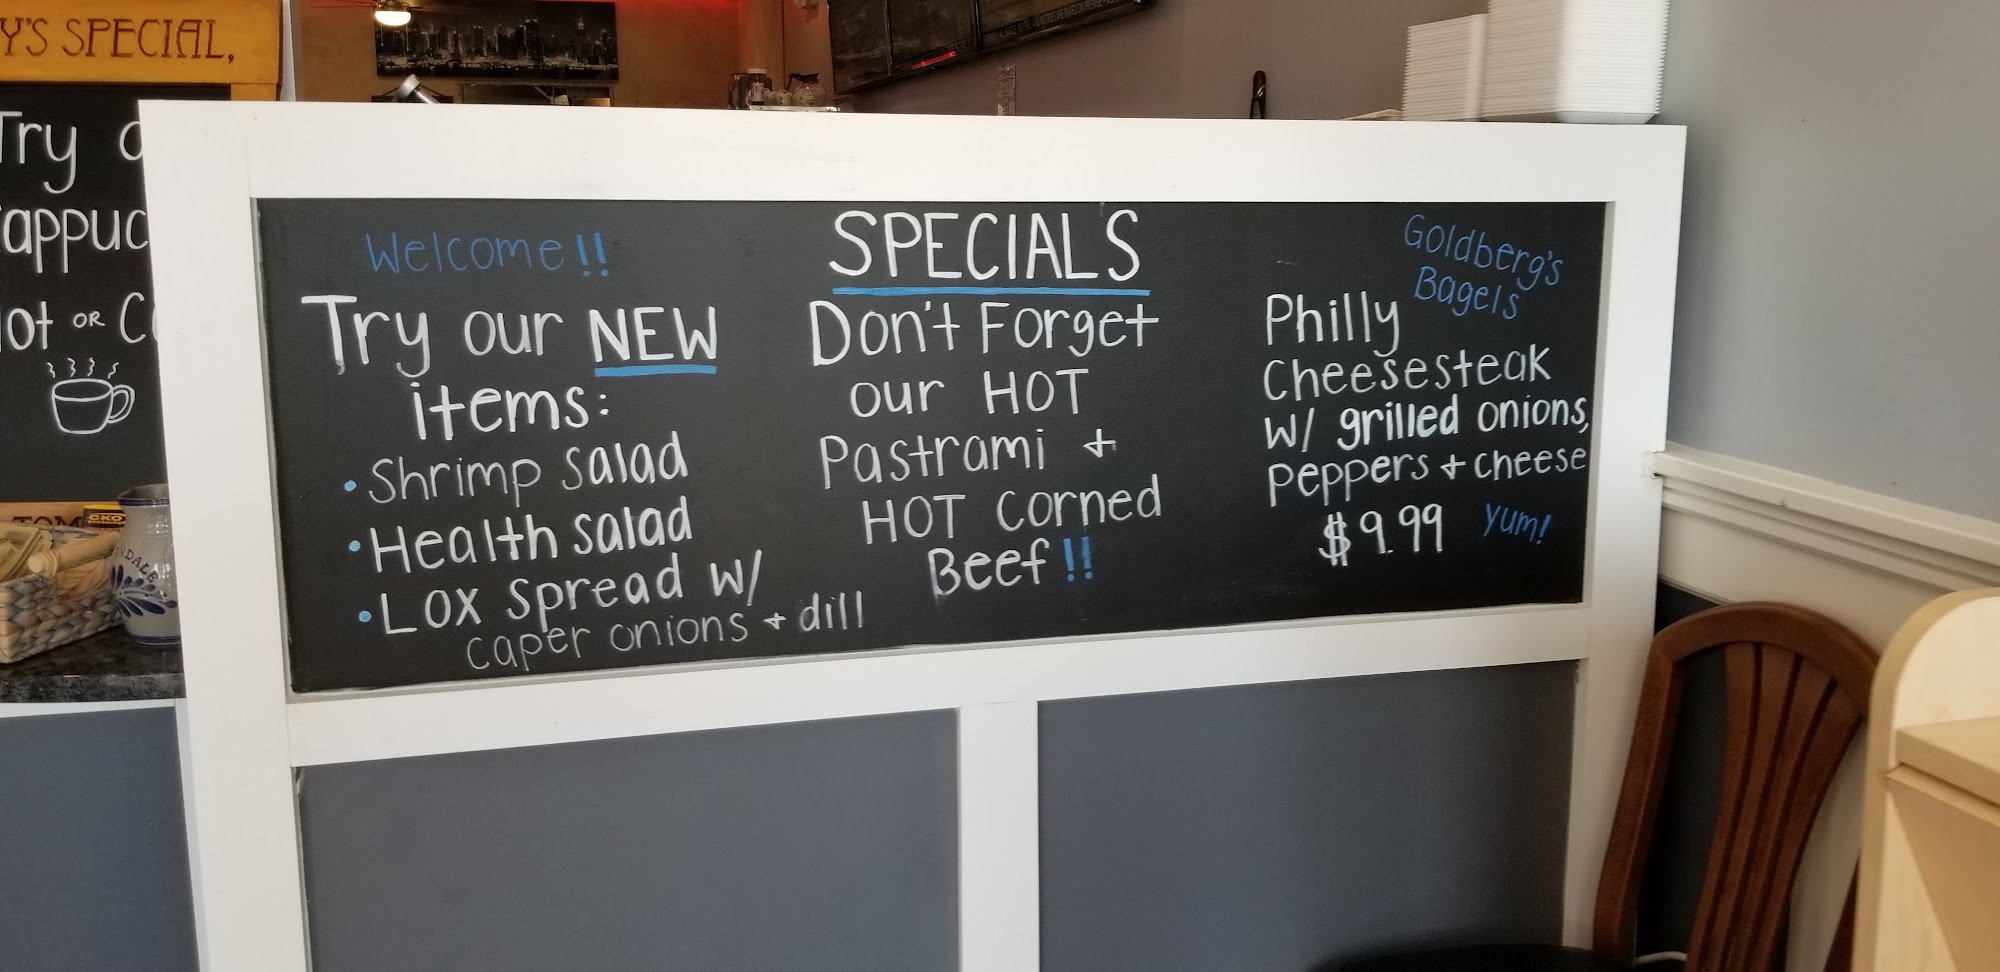 Y'S SPECIAL,
Try
OR
Welcome!!
Try our NEW
items:
• Shrimp salad
• Health salad
• Lox spread w/
caper onions + dill
SPECIALS
Don't Forget
our HOT
Pastrami +
HOT Corned
Beef!!
Goldberg's
Bagels
Philly
Cheesesteak
w/ grilled onions,
peppers + cheese
$9.99 yum!